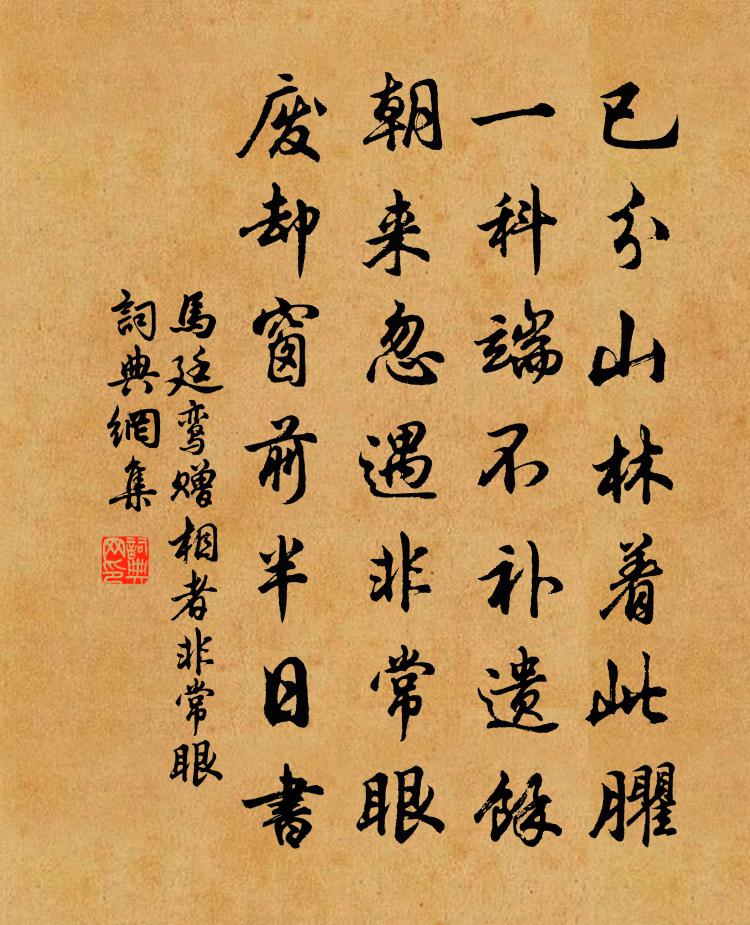 已分山林着此臞
一科端不补遗馀
朝来忽遇非常眼
废却窗前半日書
馬廷鸾赠相者非常眼
詞典網集
詞典
网印